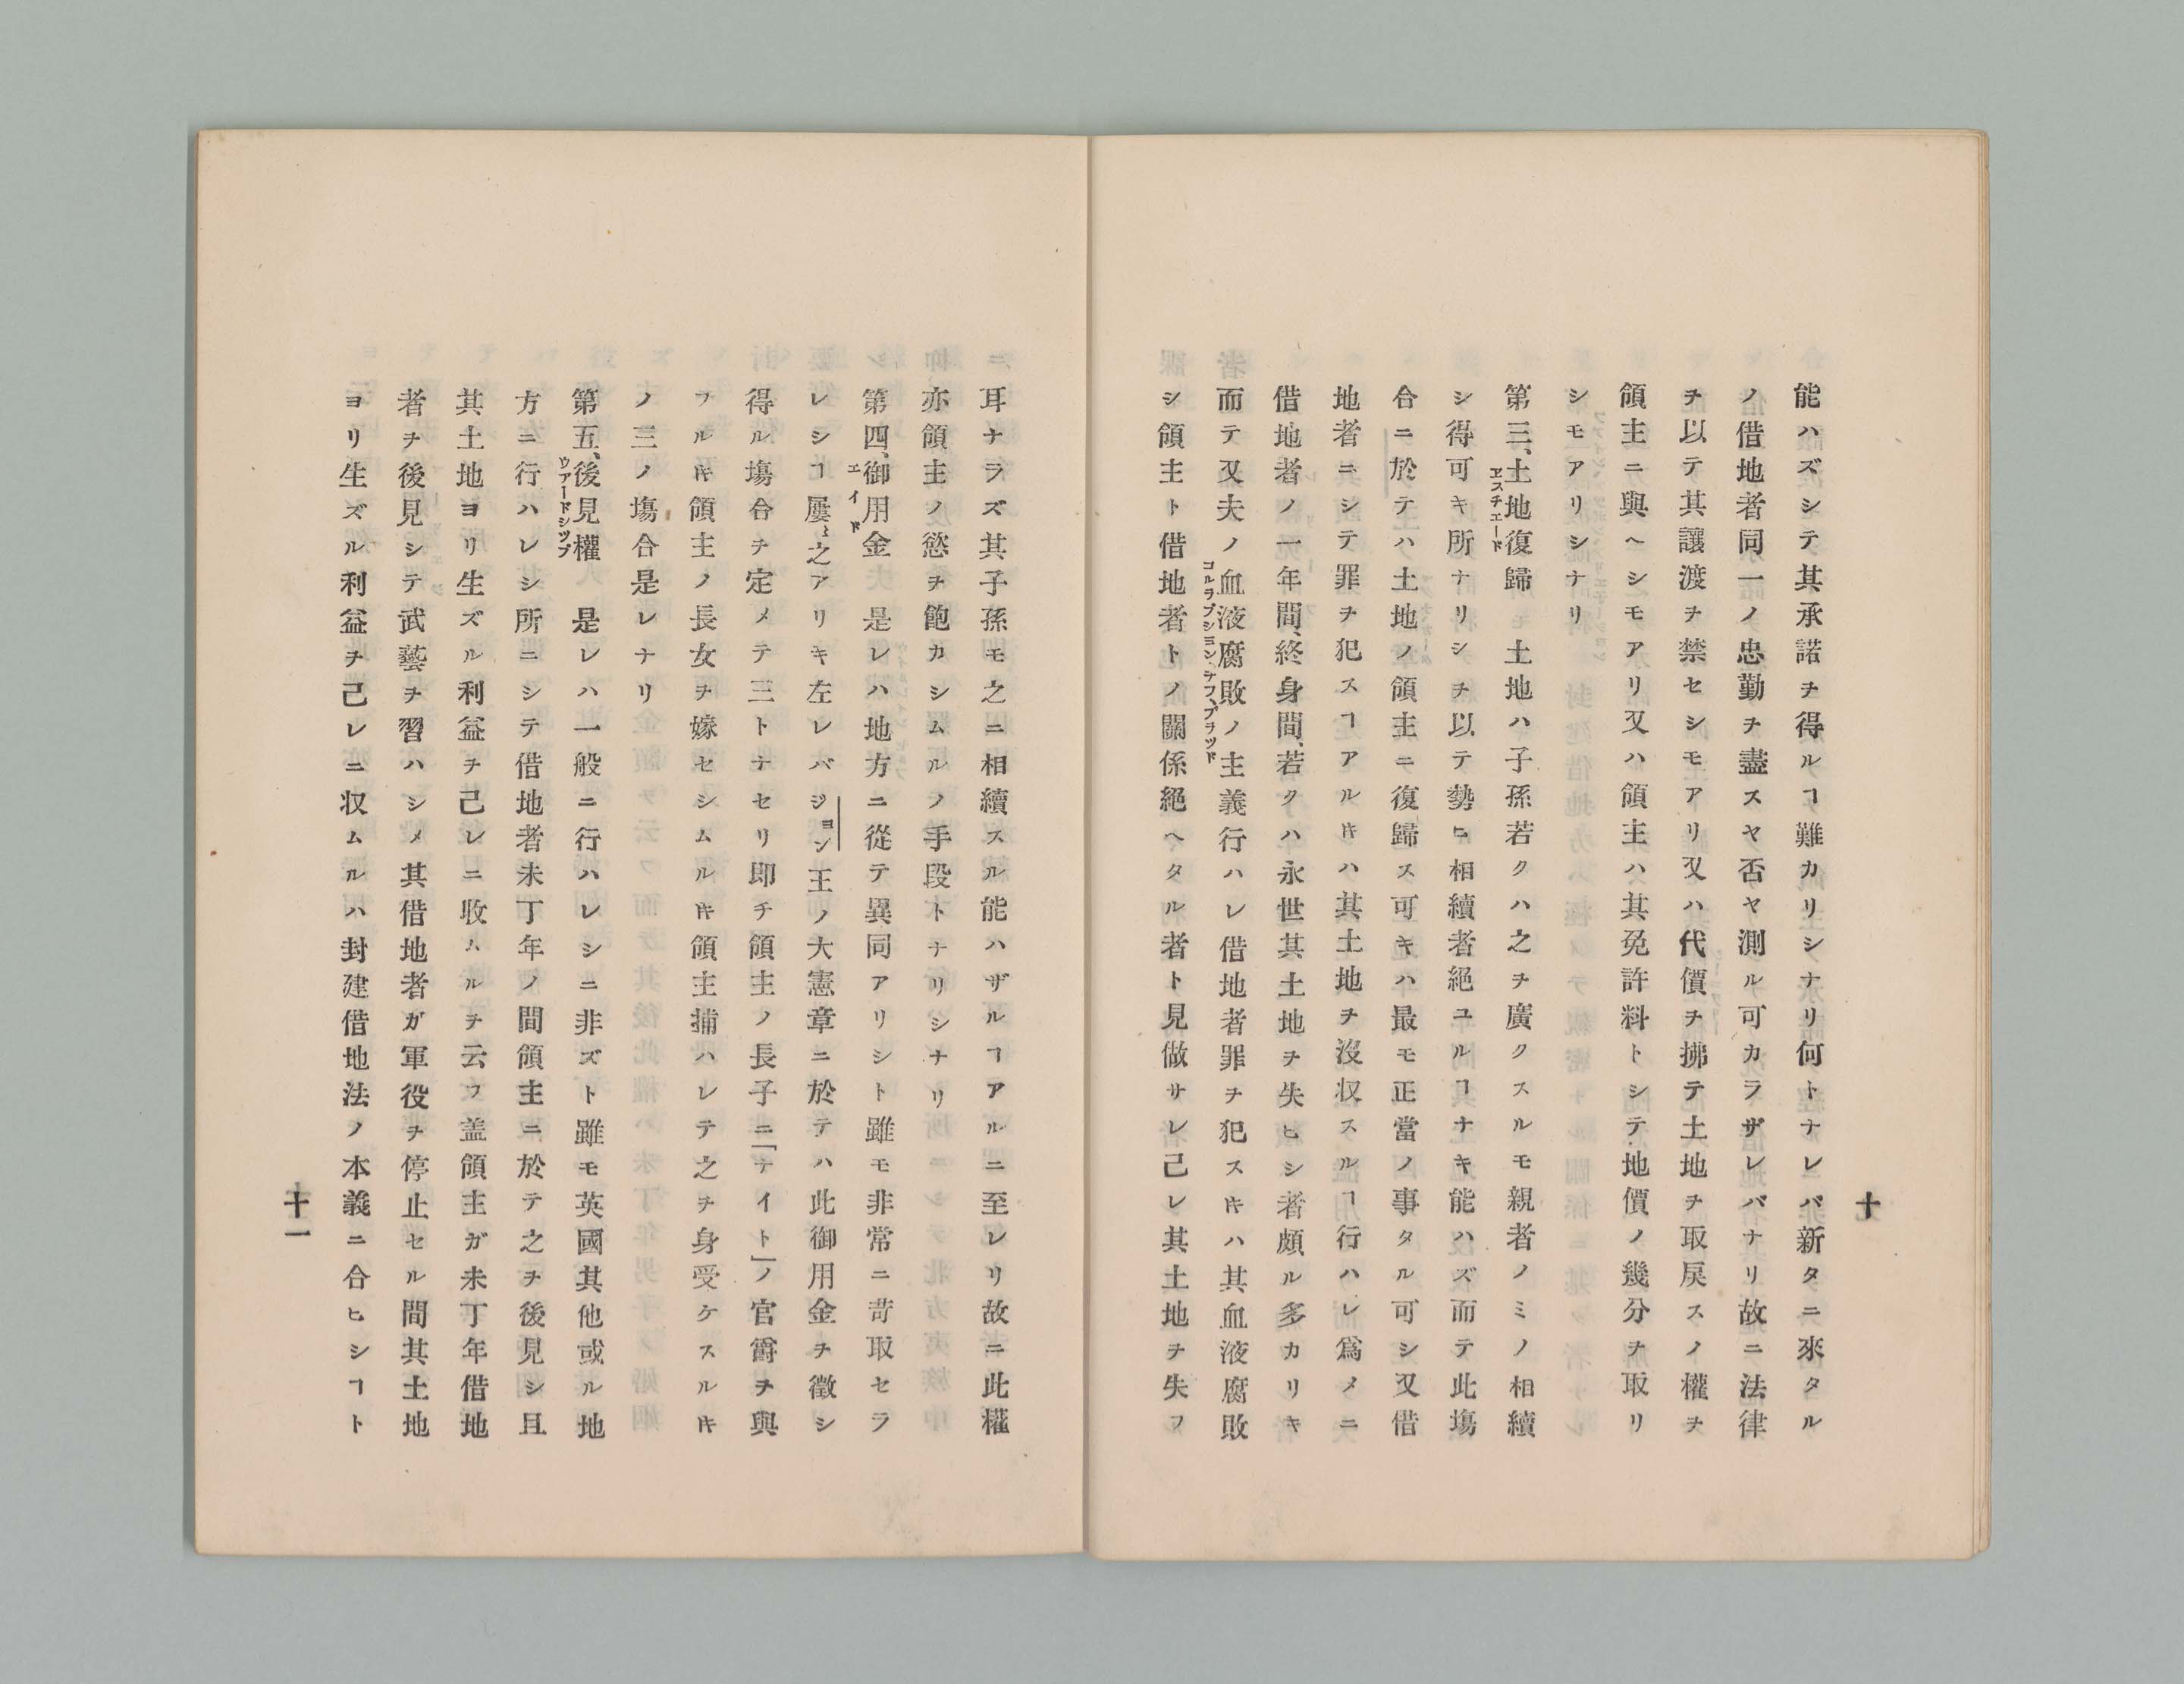 十
能ハズシテ其承諾ヲ得ルヿ難カリシナリ何トナレバ新タニ來タル
ノ借地者同一ノ忠勤ヲ盡スヤ否ヤ測ル可カラザレバナリ故ニ法律
ヲ以テ其讓渡ヲ禁セシモアリ又ハ代價ヲ拂テ土地ヲ取戻スノ權ヲ
領主ニ與ヘシモアリ又ハ領主ハ其免許料トシテ地價ノ幾分ヲ取リ
シモアリシナリ
第三、土地復歸 土地ハ子孫若クハ之ヲ廣クスルモ親者ノミノ相續
ヱスチエード
シ得可キ所ナリシヲ以テ勢ヒ相續者絕ユルヿナキ能ハズ而テ此塲
合ニ於テハ土地ノ領主ニ復歸ス可キハ最モ正當ノ事タル可シ又借
地者ニシテ罪ヲ犯スヿアルキハ其土地ヲ沒収スルヿ行ハレ爲メニ
借地者ノ一年間、終身間、若クハ永世其土地ヲ失ヒシ者頗ル多カリキ
而テ又夫ノ血液腐敗ノ主義行ハレ借地者罪ヲ犯スキハ其血液腐敗
コルラプシヨン、ヲフ、ブラッド
シ領主ト借地者トノ關係絕ヘタル者ト見做サレ己レ其土地ヲ失フ
耳ナラズ其子孫モ之ニ相續スル能ハザルヿアルニ至レリ故ニ此權
亦領主ノ慾ヲ飽カシムルノ手段トナリシナリ
第四、御用金 是レハ地方ニ從テ異同アリシト雖モ非常ニ苛取セラ
エイド
レシヿ屢〻之アリキ左レバジヨン王ノ大憲章ニ於テハ此御用金ヲ徵シ
得ル塲合ヲ定メテ三トナセリ即チ領主ノ長子ニ「ナイト」ノ官爵ヲ與
フルキ領主ノ長女ヲ嫁セシムルキ領主捕ハレテ之ヲ身受ケスルキ
ノ三ノ塲合是レナリ
第五、後見權 是レハ一般ニ行ハレシニ非ズト雖モ英國其他或ル地
ウアードシップ
方ニ行ハレシ所ニシテ借地者未丁年ノ間領主ニ於テ之ヲ後見シ且
其土地ヨリ生ズル利益ヲ己レニ收ムルヲ云フ盖領主ガ未丁年借地
者ヲ後見シテ武藝ヲ習ハシメ其借地者ガ軍役ヲ停止セル間其土地
ヨリ生ズル利益ヲ己レニ収ムルハ封建借地法ノ本義ニ合ヒシヿト
十一